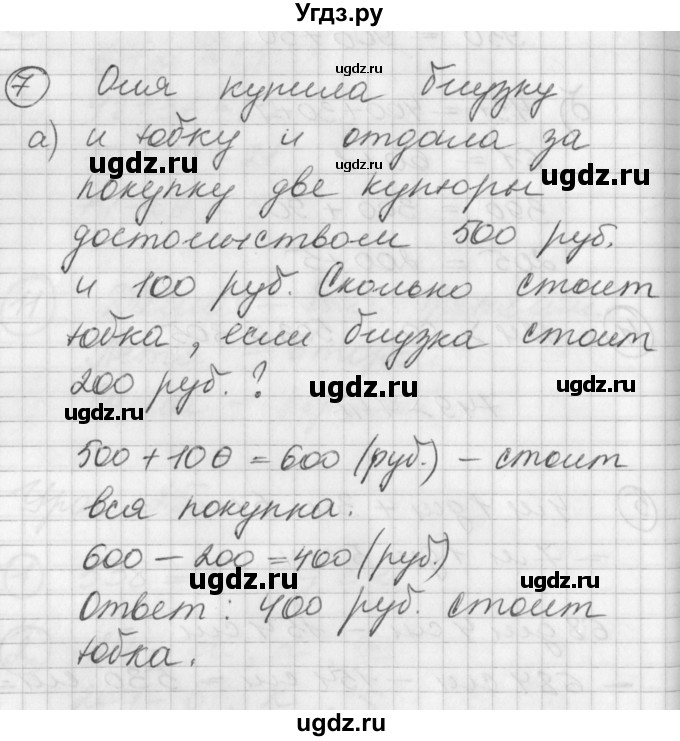 Угдз.ру
7 Оля купила блузку
а) и юбку и отдала за
покупку две купюры
достоинством 500 руб.
и 100 руб. Сколько стоит
юбка, если блузка стоит
200 руб.?
500 + 100 = 600 (руб.) – стоит
вся покупка.
600 – 200 = 400 (руб.)
Ответ: 400 руб. стоит
юбка.
ugdz.ru
ugdz.ru
ugdz.ru
ugdz.ru
ugdz.ru
ugdz.ru
ugdz.ru
ugdz.ru
ugdz.ru
ugdz.ru
ugdz.ru